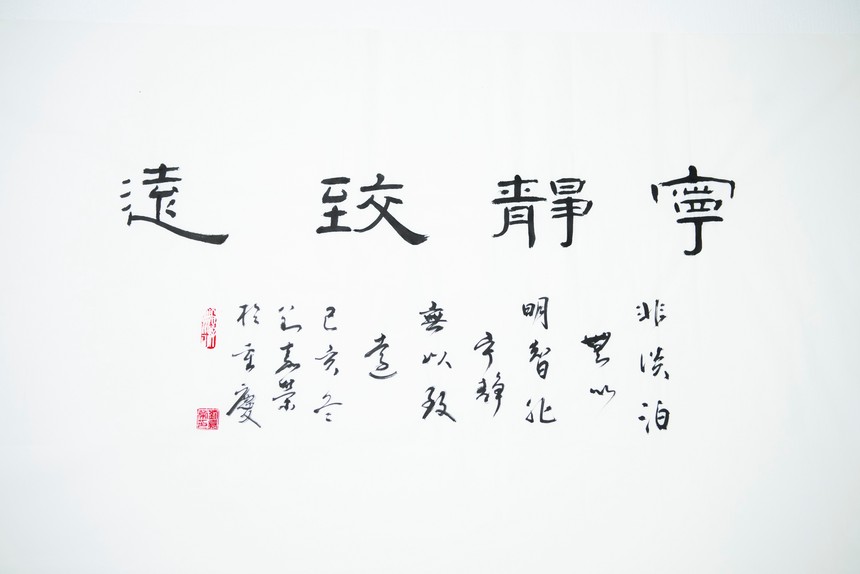 寧靜致遠
非淡泊
無以
明智非
宁静
無以致
遠
己亥冬
榮
於重慶